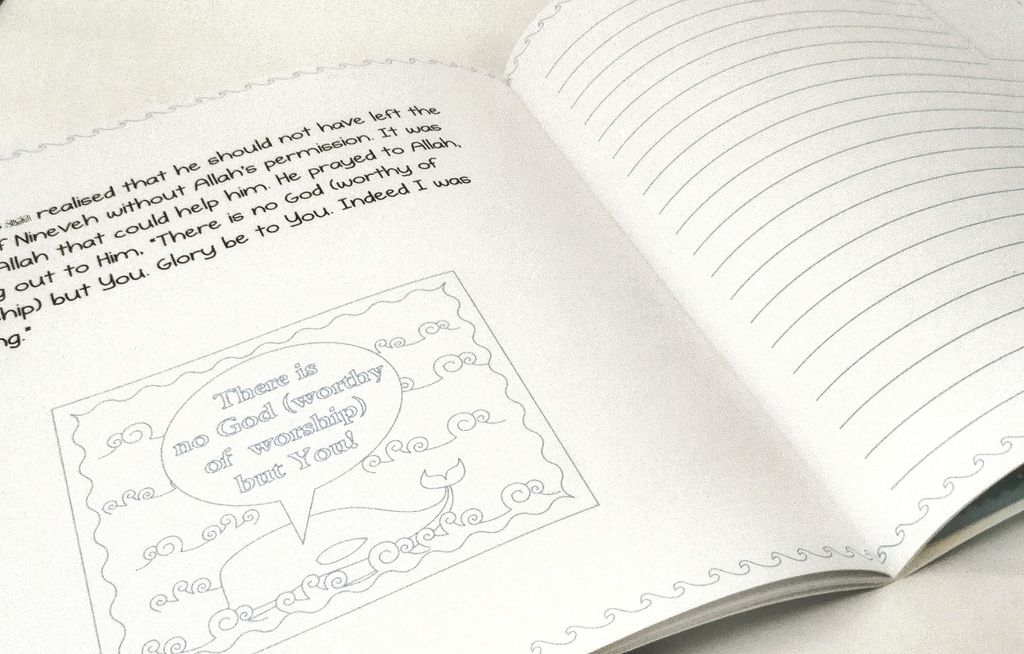 realised that he should not have left the
Nineveh without Allah's permission. It was
Allah that could help him. He prayed to Allah,
out to Him, "There is no God (worthy of
but You. Glory be to You. Indeed I was
There is
no God (worthy
of worship)
but You!